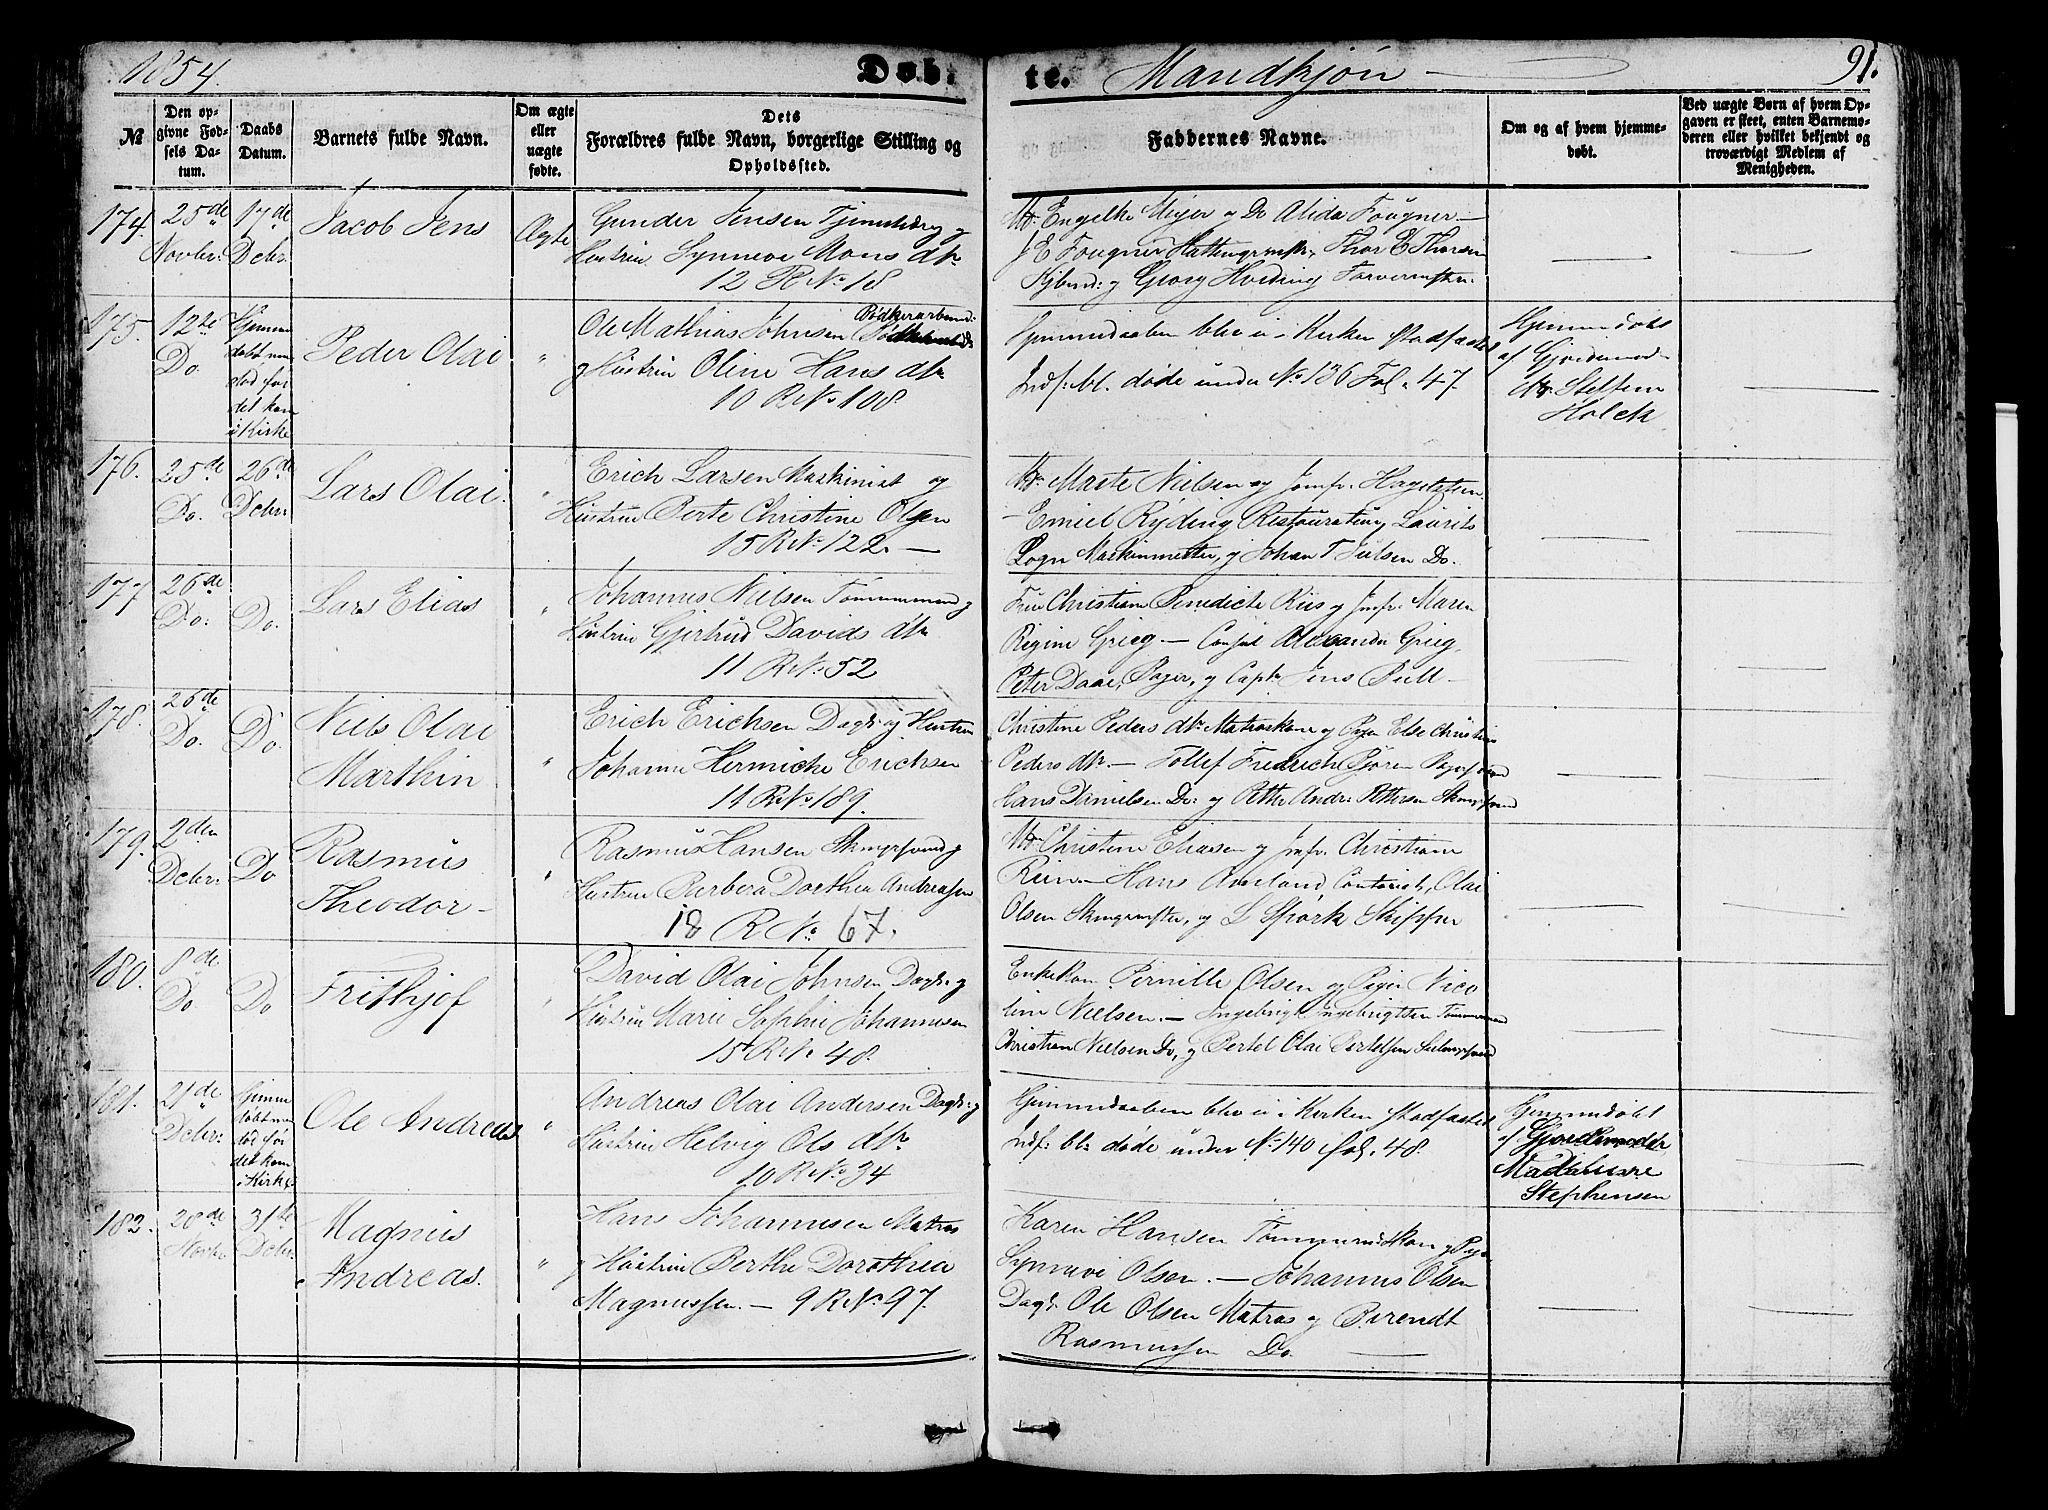 1854. Døb- te. Mandkjøn 91.
№
Den opgivne Fødsels Datum.
Daabs Datum.
Barnets fulde Navn.
Om ægte eller uægte fødte.
Dets Forældres fulde Navn, borgerlige Stilling og Opholdssted.
Faddernes Navne.
Om og af hvem hjemmedøbt.
Ved uægte Børn af hvem Opgaven er skeet, enten Barnemoderen eller hvilket bekjendt og troværdigt Medlem af Menigheden.
174. 25de Novbr: 17de Dcbr. Jacob Jens Ægte
Gunder Jensen og
Hustrue Synneve Mons dtr
12 R No 18
Md Engelke Meyer og Do Alida Fougner
J E Fougner Thor E Thorsen
Kjbmd: og Georg Hveding Farvermster.
175. 12te Do. Hjemmedøbt men død før det kom i Kirke
Peder Olai "
Ole Mathias Johnsen Bødkerarbeid:
og Hustrue Oline Hans dtr
10 R No 108.
Hjemmedaaben blev ei i Kirken stadfæstet
Indf: bl. døde under No 136 Fol. 47.
Hjemmedøbt
af Gjordemod.
Md. Steffen
Holck
176. 25de Do. 26de Dcbr. Lars Olai. "
Erich Larsen Maskinist og
Hustrue Berte Christine Olsen
15 R No 122.
Md. Marte Nielsen og Jomfr. Hagelsten
Emiel Ryding Restauratiør, Laurits
Sogn Maskinmester, og Johan T Julsen Do.
177 26de Do. Do. Lars Elias "
Johannes Nielsen Tømmermand og
Hustrue Gjertrud Davids dtr
11 R No 52
Frue Christiane Benedicte Riis og Jmfr. Maren
Regine Grieg. — Consul Alexander Grieg,
Peter Daae, Bager, og Captn Jens Bull
178. 26de Do. Do. Niels Olai
Marthin "
Erich Erichsen Dagk: og Hustrue
Johanne Hermiche Erichsen
11 R No 189.
Christine Peders dtr Matroskone og Pigen Else Christine
Peders dtr. — Tollef Fredrich Bjøren
Hans Danielsen Do: og Petter Andr: Pettersen
179. 2den Dcbr: Do Rasmus
Theodor "
Rasmus Hansen og
Hustrue Barbera Dorthea Andreasen
18 R No 67.
Md. Christine Eliasen og Jmfr. Christiane
Hans Contorist, Olai
Olsen og L Spørk Skipper
180. 8de Do. Do Frithjof "
David Olai Johnsen Dagk: og
Hustrue Marie Sophie Johannesen
15 R No 48.
Enkekone Pernille Olsen og Pigen Nico
line Nielsen. — Ingebrigt Ingebrigtsen Tømmermand
Christian Nielsen Do, og Bertel Olai Bertelsen
181. 21de Dcbr: Hjemmedøbt men død før det kom i Kirke
Ole Andreas "
Andreas Olai Andersen Dagk: og
Hustrue Helvig Ols dtr
10 R No 34
Hjemmedaaben blev ei i Kirken stadfæstet
Indf: bl: døde under No 140 fol. 48.
Hjemmedøbt
af Gjordemoder
Stephensen
182. 28de Novbr 31te Dcbr. Magnus
Andreas. "
Hans Johannesen Matros
og Hustrue Berthe Dorothea
Magnussen. — 9 R No 97.
Karen Hansen Tømmermdskone og Pige
Synneve Olsen. — Johannes Olsen
Dagk. Ole Olsen Matros og Berendt
Rasmussen Do.